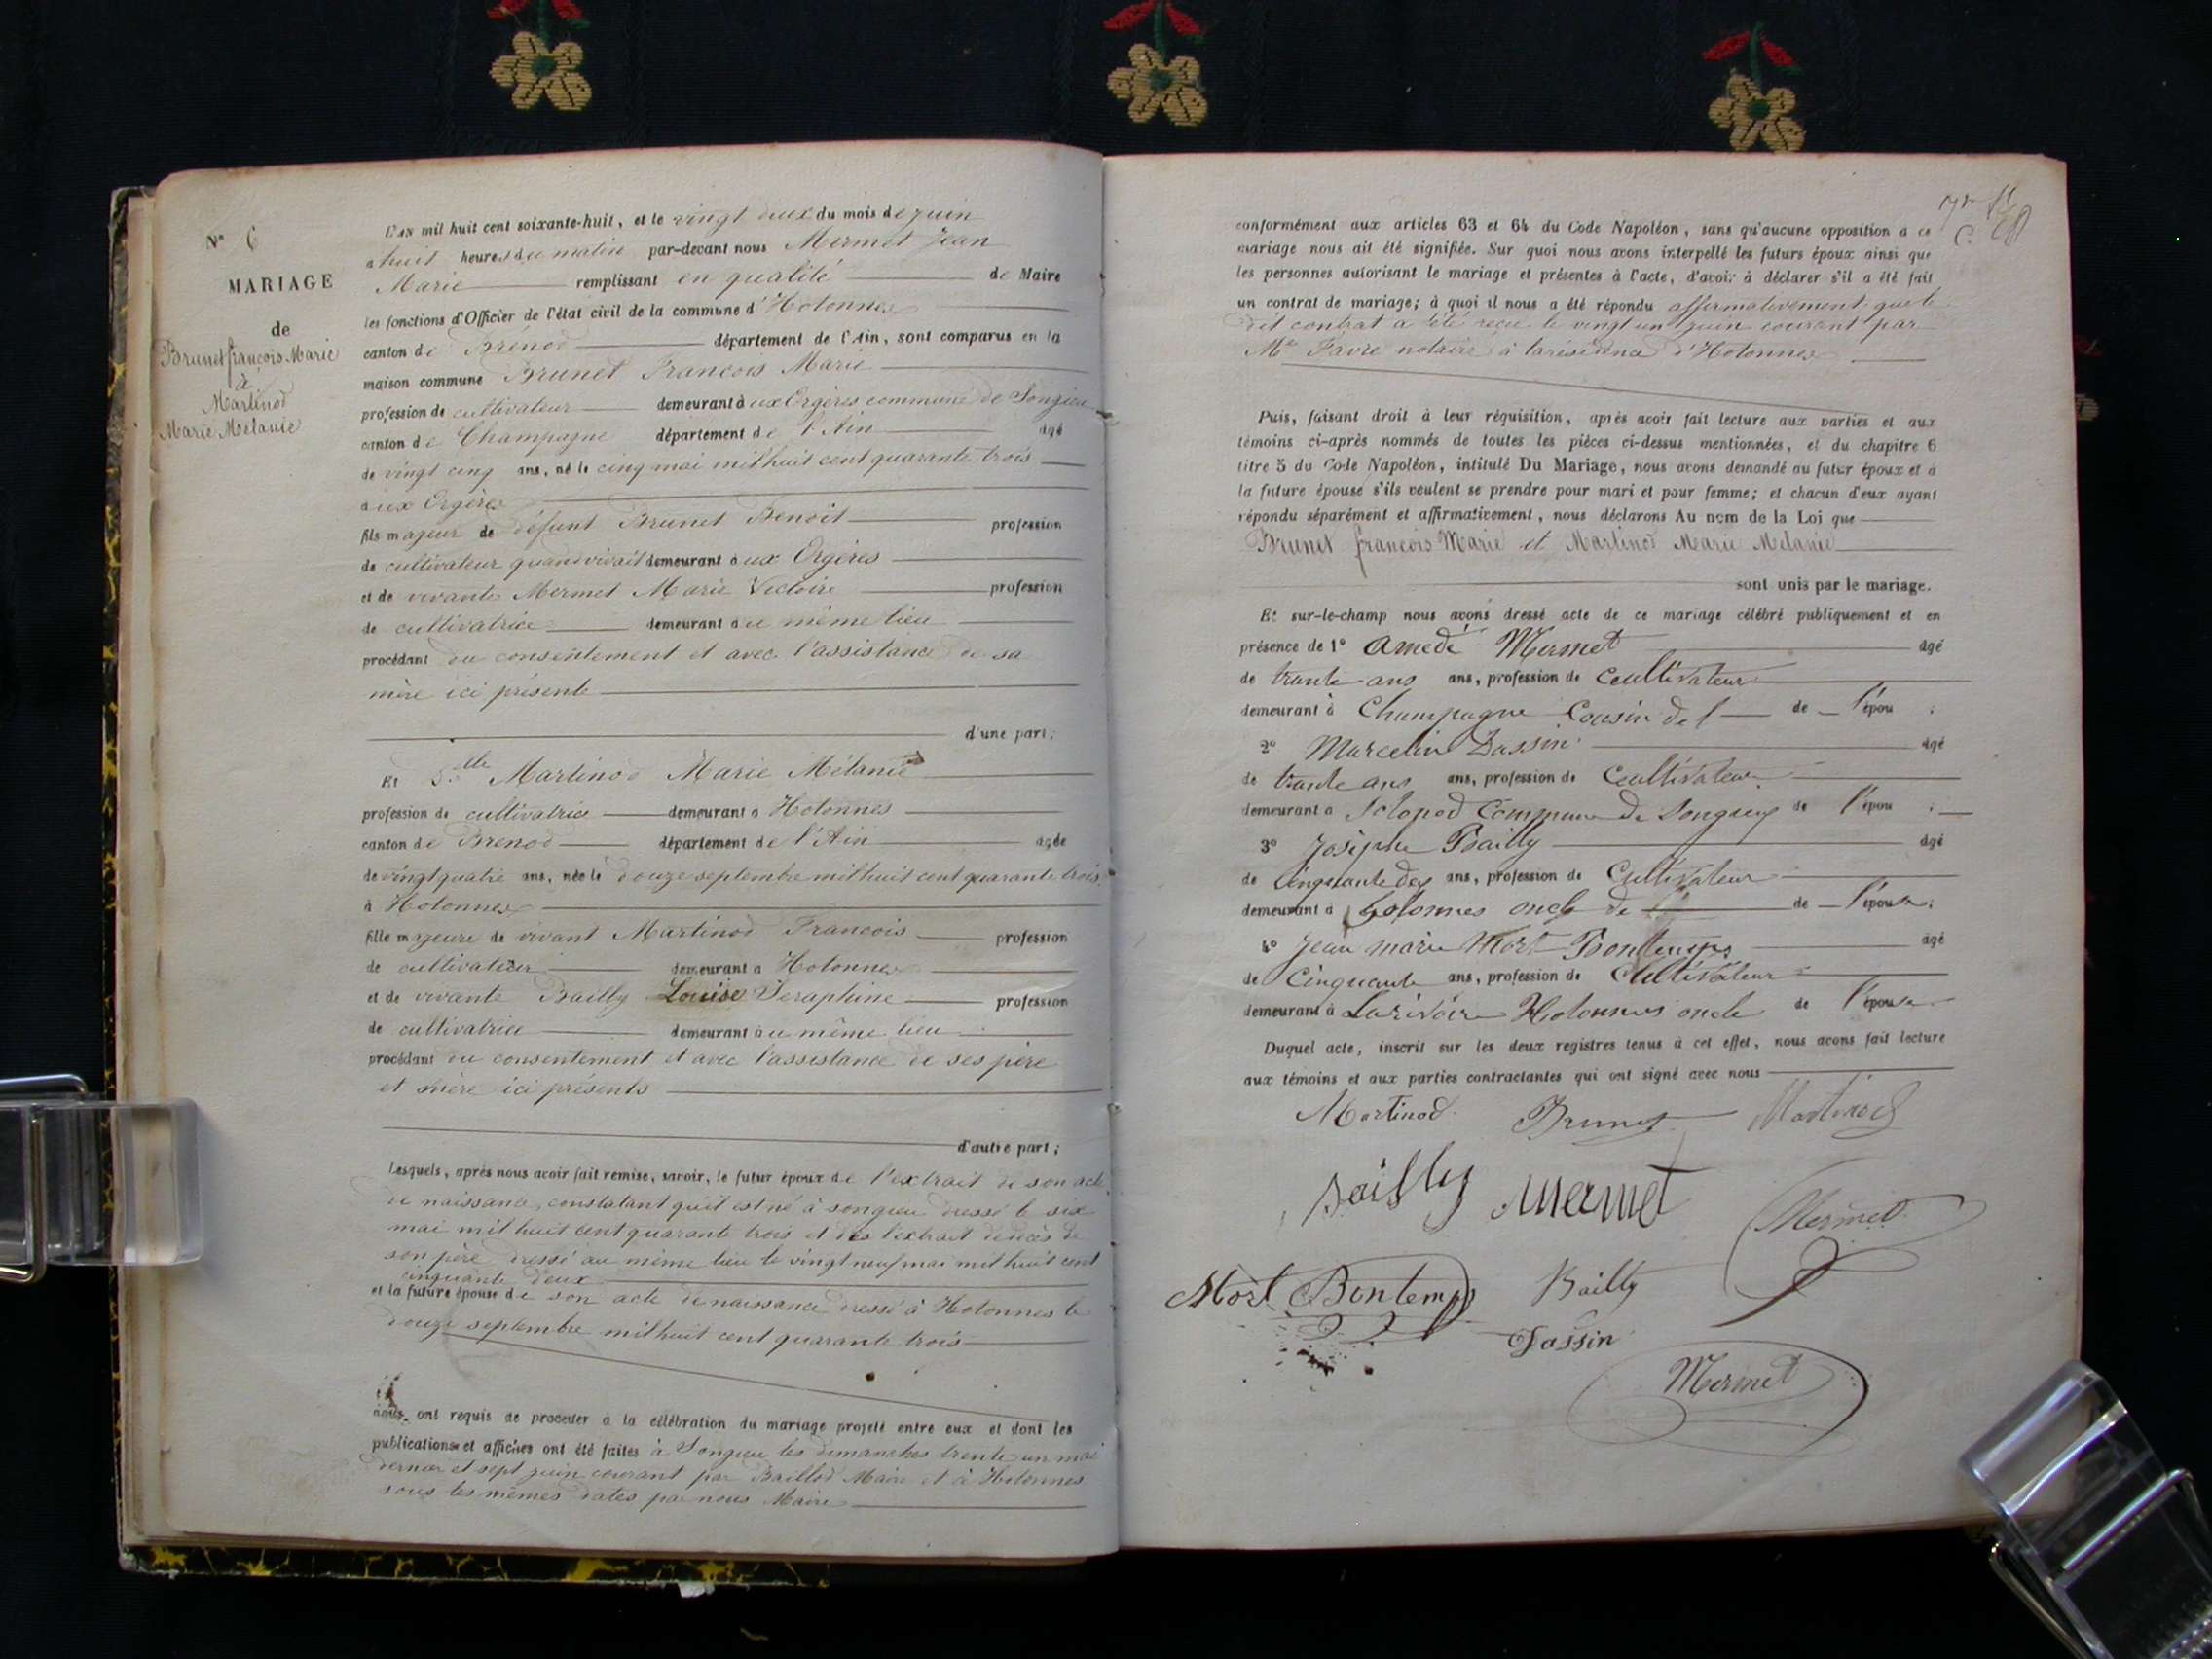 N° 6
MARIAGE
de
Brunet françois Marie
à
Martinod
Marie Mélanie
L'AN mil huit cent soixante-huit, et le vingt deux du mois de juin
à huit heures du matin par-devant nous Mermet Jean
Marie remplissant en qualité de Maire
les fonctions d'Officier de l'état civil de la commune d'Hotonnes
canton de Brénod département de l'Ain, sont comparus en la
maison commune Brunet François Marie
profession de cultivateur demeurant à ux Ergères commune de Songieu
canton de Champagne département de l'Ain âgé
de vingt cinq ans, né le cinq mai mil huit cent quarante trois
aux Ergères
fils majeur de défunt Brunet Benoit profession
de cultivateur quand vivait demeurant à ux Ergères
et de vivante Mermet Marie Victoire profession
de cultivatrice demeurant au même lieu
procédant du consentement et avec l'assistance de sa
mère ici présente
d'une part;
Et Dlle Martinod Marie Mélanie
profession de cultivatrice demeurant à Hotonnes
canton de Brenod département de l'Ain âgée
de vingt quatre ans, née le douze septembre mil huit cent quarante trois
à Hotonnes
fille majeure de vivant Martinod François profession
de cultivateur demeurant à Hotonnes
et de vivante Bailly Louise Séraphine profession
de cultivatrice demeurant au même lieu
procédant du consentement et avec l'assistance de ses père
et mère ici présents
d'autre part;
Lesquels, après nous avoir fait remise, savoir, le futur époux de l'extrait de son acte
de naissance, constatant qu'il est né à songieu dressé le six
mai mil huit cent quarante trois et des l'extrait de décès de
son père dressé au même lieu le vingt neuf mai mil huit cent
cinquante deux
et la future épouse de son acte de naissance dressé à Hotonnes le
douze septembre mil huit cent quarante trois
nous ont requis de procéder à la célébration du mariage projeté entre eux et dont les
publications et affiches ont été faites à Songieu les dimanches trente un mai
dernier et sept juin courant par Baillod Maire et à Hotonnes
sous les mêmes dates par nous Maire
conformément aux articles 63 et 64 du Code Napoléon, sans qu'aucune opposition à ce
mariage nous ait été signifiée. Sur quoi nous avons interpellé les futurs époux ainsi que
les personnes autorisant le mariage et présentes à l'acte, d'avoir à déclarer s'il a été fait
un contrat de mariage; à quoi il nous a été répondu affirmativement que le
dit contrat a été reçu le vingt un juin courant par
Me Favre notaire à la résidence d'Hotonnes
Puis, faisant droit à leur réquisition, après avoir fait lecture aux parties et aux
témoins ci-après nommés de toutes les pièces ci-dessus mentionnées, et du chapitre 6
titre 5 du Code Napoléon, intitulé Du Mariage, nous avons demandé au futur époux et à
la future épouse s'ils veulent se prendre pour mari et pour femme; et chacun d'eux ayant
répondu séparément et affirmativement, nous déclarons Au nom de la Loi que
Brunet françois Marie et Martinod Marie Mélanie
sont unis par le mariage.
Et sur-le-champ nous avons dressé acte de ce mariage célébré publiquement et en
présence de 1° Amedé Mermet âgé
de trante ans ans, profession de Ceultivateur
demeurant à Champagne Cousin de l de l'épou ;
2° Marcelin Dassin âgé
de trante ans ans, profession de Ceultivateur
demeurant à Commune de de l'épou ;
3° Josephe Bailly âgé
de ans, profession de Cultivateur
demeurant à Hotonnes oncle de de l'épouse;
4° Jean marie Mort Bontemps âgé
de Cinquante ans, profession de Cultivateur
demeurant à Larivoire Hotonnes oncle de l'épouse
Duquel acte, inscrit sur les deux registres tenus à cet effet, nous avons fait lecture
aux témoins et aux parties contractantes qui ont signé avec nous
Martinod Brunet Martinod
Bailly Mermet
Mermet
Mort Bontemps Bailly
Dassin
Mermet